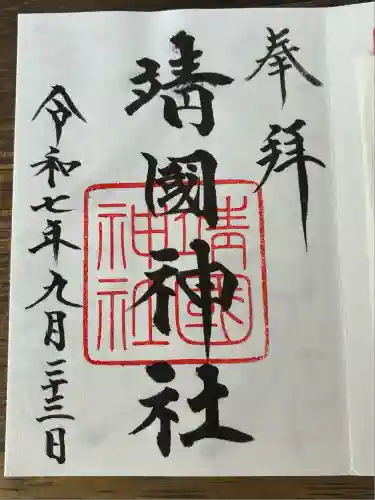 奉拝
靖國神社
靖國
神社
令和七年九月二十三日